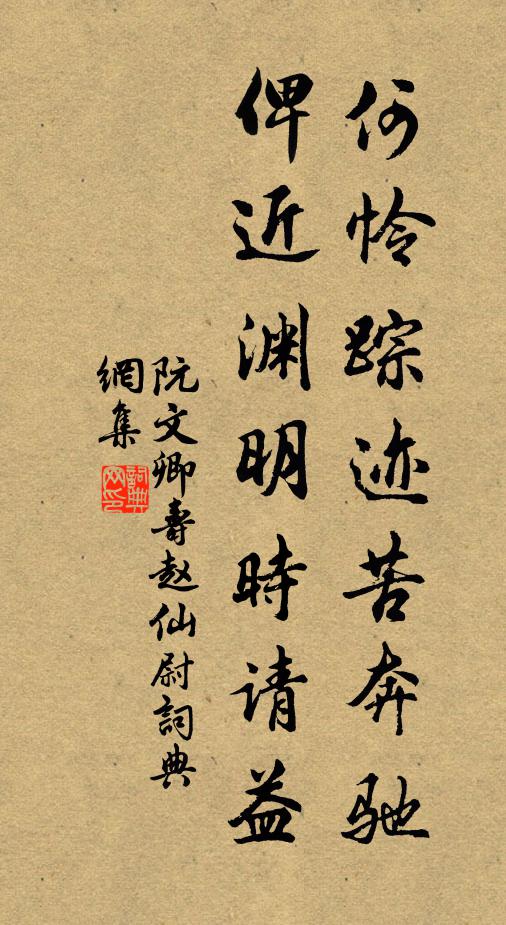 何怜踪迹苦奔驰
俾近渊明時请益
阮文卿壽赵仙尉詞典
網集
詞典
网印